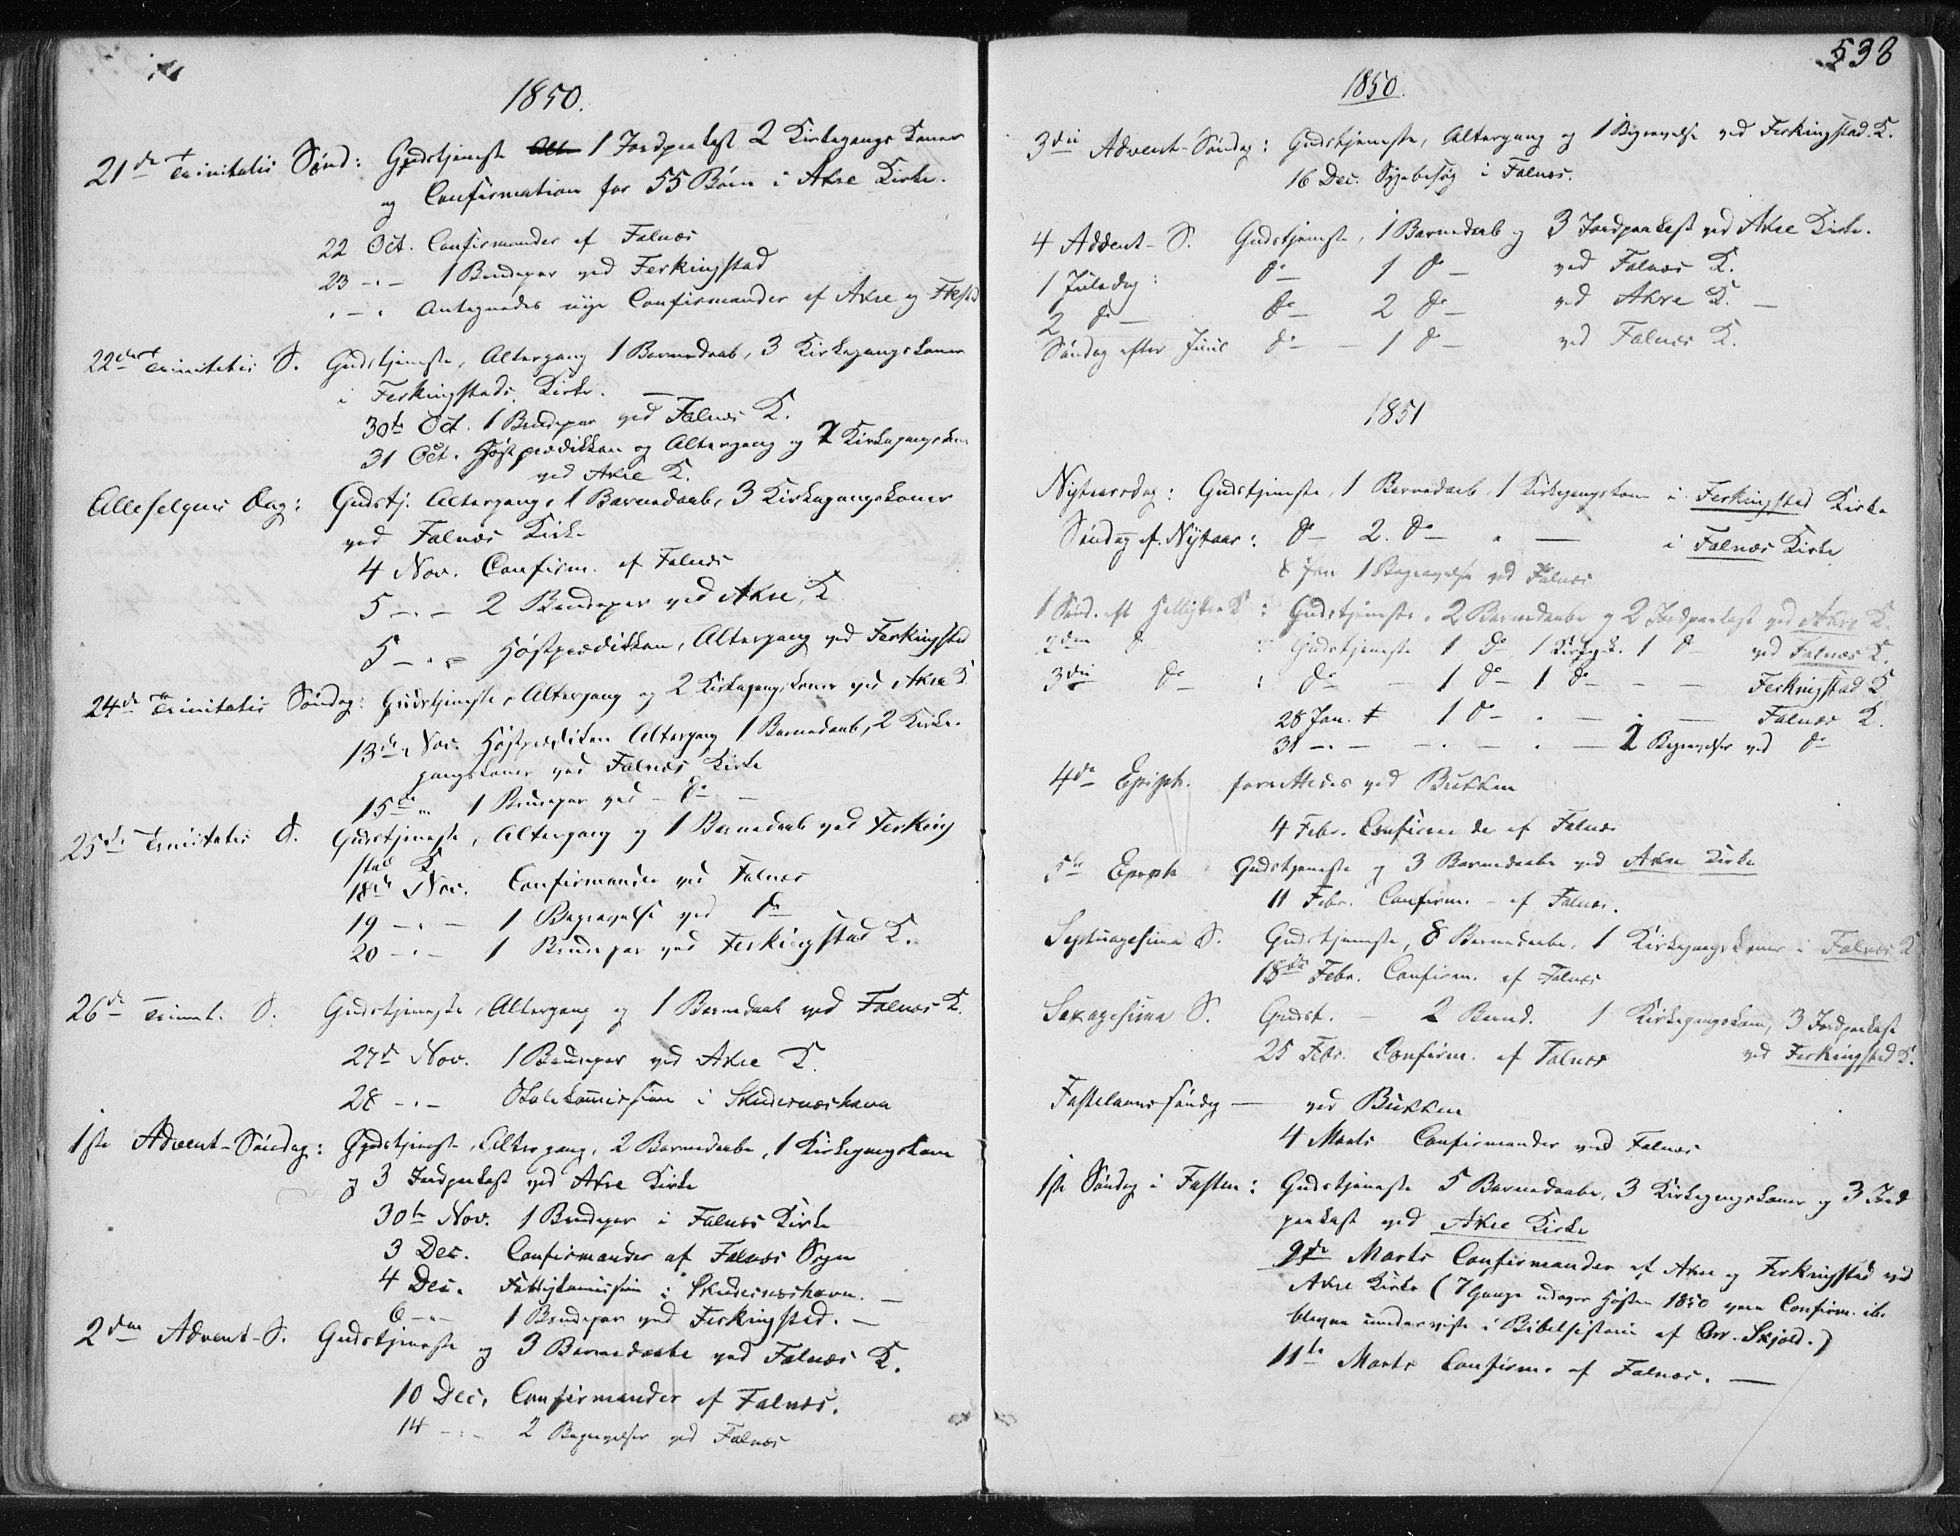 1850.
21de Trinitatis Sønd: Gudstjeneste 1 Jordpaakast 2 Kirkegangs Koner
og Confirmation for 55 Børn i Akre Kirke.
22 Oct. Confirmander af Falnæs
23 -"- 1 Brudepar ved Ferkingstad
" - " Antegnedes nye Confirmander af Akre og Fkstd
22de Trinitatis S. Gudstjeneste, Altergang 1 Barnedaab, 3 Kirkegangskoner
i Ferkingstads Kirke.
30te Oct. 1 Brudepar ved Falnæs K.
31 Oct. Høstprædikken og Altergang og 2 Kirkegangskon
ved Akre K.
Allehelgens Dag: Gudstj. Altergang, 1 Barnedaab, 3 Kirkegangskoner
ved Falnæs Kirke
4 Nov. Confirm. af Falnæs
5 -"- 2 Brudepar ved Akre K
5 -"- Høstprædikken, Altergang ved Ferkingstad
24de Trinitatis Søndag: Gudstjeneste, Altergang og 2 Kirkegangskoner ved Akre K
13de Nov. Høstprædiken Altergang 1 Barnedaab, 2 Kirke-
gangskoner ved Falnæs Kirke
15de " 1 Brudepar ved - do -
25de Trinitatis S. Gudstjeneste, Altergang og 1 Barnedaab ved Ferking
stad K
18de Nov. Confirmander ved Falnæs
19 -"- 1 Begravelse ved do
20 -"- 1 Brudepar ved Ferkingstad K.
26de Trinit. S. Gudstjeneste, Altergang og 1 Barnedaab ved Falnæs K.
27de Nov. 1 Brudepar ved Akre K.
28 -"- Skolekommission i Skudesnæshavn
1ste Advent-Søndag: Gudstjeneste, Altergang, 2 Barnedaabe, 1 Kirkegangskone
og 3 Jordpaakast ved Akre Kirke
30te Nov. 1 Brudepar i Falnæs Kirke
3 Dec. Confirmander af Falnæs Sogn
4 Dec. Fattigkommission i Skudesnæshavn. -
6 -"- 1 Brudepar ved Ferkingstad. -
2den Advent-S. Gudstjeneste og 3 Barnedaabe ved Falnæs K.
10 Dec. Confirmander af Falnæs.
14 -"- 2 Begravelser ved Falnæs
538
1850.
3die Advent-Søndag: Gudstjeneste, Altergang og 1 Begravelse ved Ferkingstad. K.
16 Dec. Sygebesøg i Falnæs.
4 Advent-S. Gudstjeneste, 1 Barnedaab og 3 Jordpaakast ved Akre Kirke.
1 Juledag: do 1 do - ved Falnæs K.
2 do - do - 2 do - ved Akre K. -
Søndag efter Juul do - - 1 do - ved Falnæs K.
1851
Nytaarsdag: Gudstjeneste, 1 Barnedaab, 1 Kirkegangskone i Ferkingstad Kirke
Søndag ef. Nytaar: do - 2. do - " - i Falnæs Kirke
8 Jan 1 Begravelse ved Falnæs
1 Sønd. eft Helligtre K: Gudstjeneste, 2 Barnedaabe og 2 Jordpaakast ved Akre K.
2den do : Gudstjeneste 1 do 1 Kirkegk. 1 do ved Falnæs K.
3die do - : do - - 1 do - 1 do - - - Ferkingstad K
28 Jan. 1 do - " - " - Falnæs K.
31 -"- - " - " - 2 Begravelser ved do
4de Epiph. forrettedes ved Bukken
4 Febr. Confirmande af Falnæs
5te Epiph Gudstjeneste og 3 Barnedaabe ved Akre Kirke
11 Febr. Confirm. - af Falnæs.
Septuagesima S. Gudstjeneste, 8 Barnedaabe, 1 Kirkegangskoner i Falnæs K
18de Febr. Confirm. af Falnæs
Sexagesima S. Gudst. - 2 Barned. 1 Kirkegangskone, 3 Jordpaakast
25 Febr. Confirm. af Falnæs ved Ferkingstad K.
Fastelavnssøndag - ved Bukken
4 Marts Confirmander ved Falnæs
1ste Søndag i Fasten: Gudstjeneste 5 Barnedaabe, 3 Kirkegangskoner og 3 Jord
paakast ved Akre Kirke
9de Marts Confirmander af Akre og Ferkingstad ved
Akre Kirke (7 Gange udover Høsten 1850 vare Confirm. ib.
blevne underviste i Bibelhistorie af Skjold.)
11te Marts Confirm. af Falnæs. -